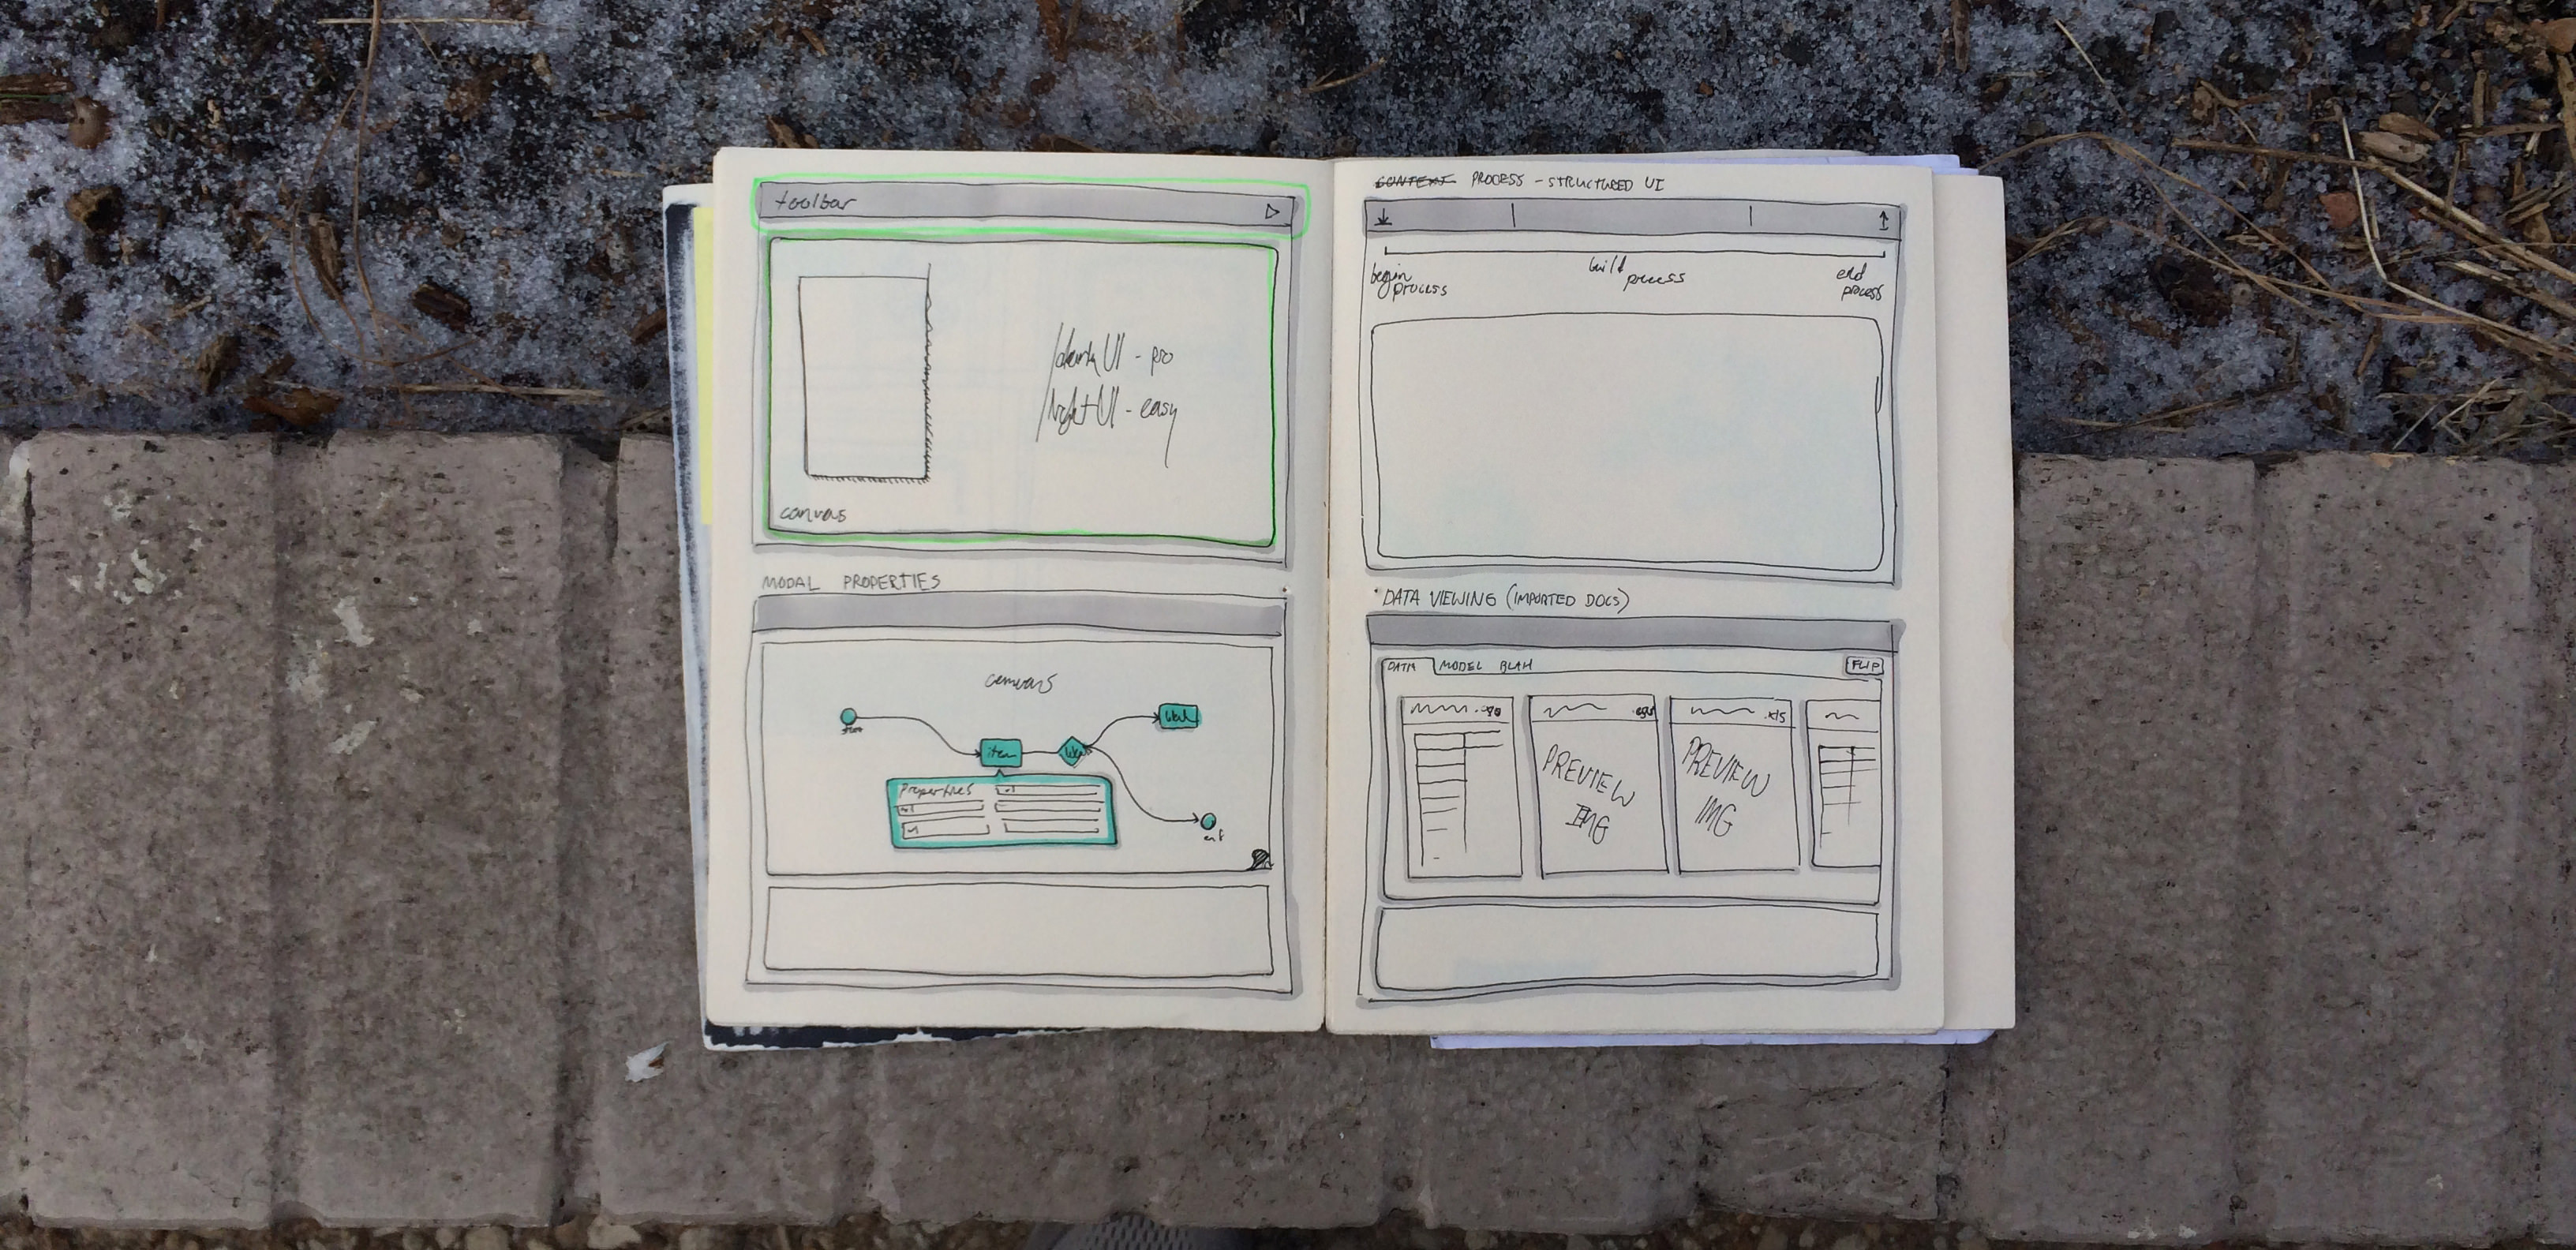 toolbar
/dark UI - pro
/light UI - easy
canvas
MODAL PROPERTIES
canvas
start
item
blah
Properties
end
CONTEXT PROCESS - STRUCTURED UI
begin process
build process
end process
DATA VIEWING (IMPORTED DOCS)
DATA MODEL BLAH
FLIP
.xls
PREVIEW
IMG
PREVIEW
IMG